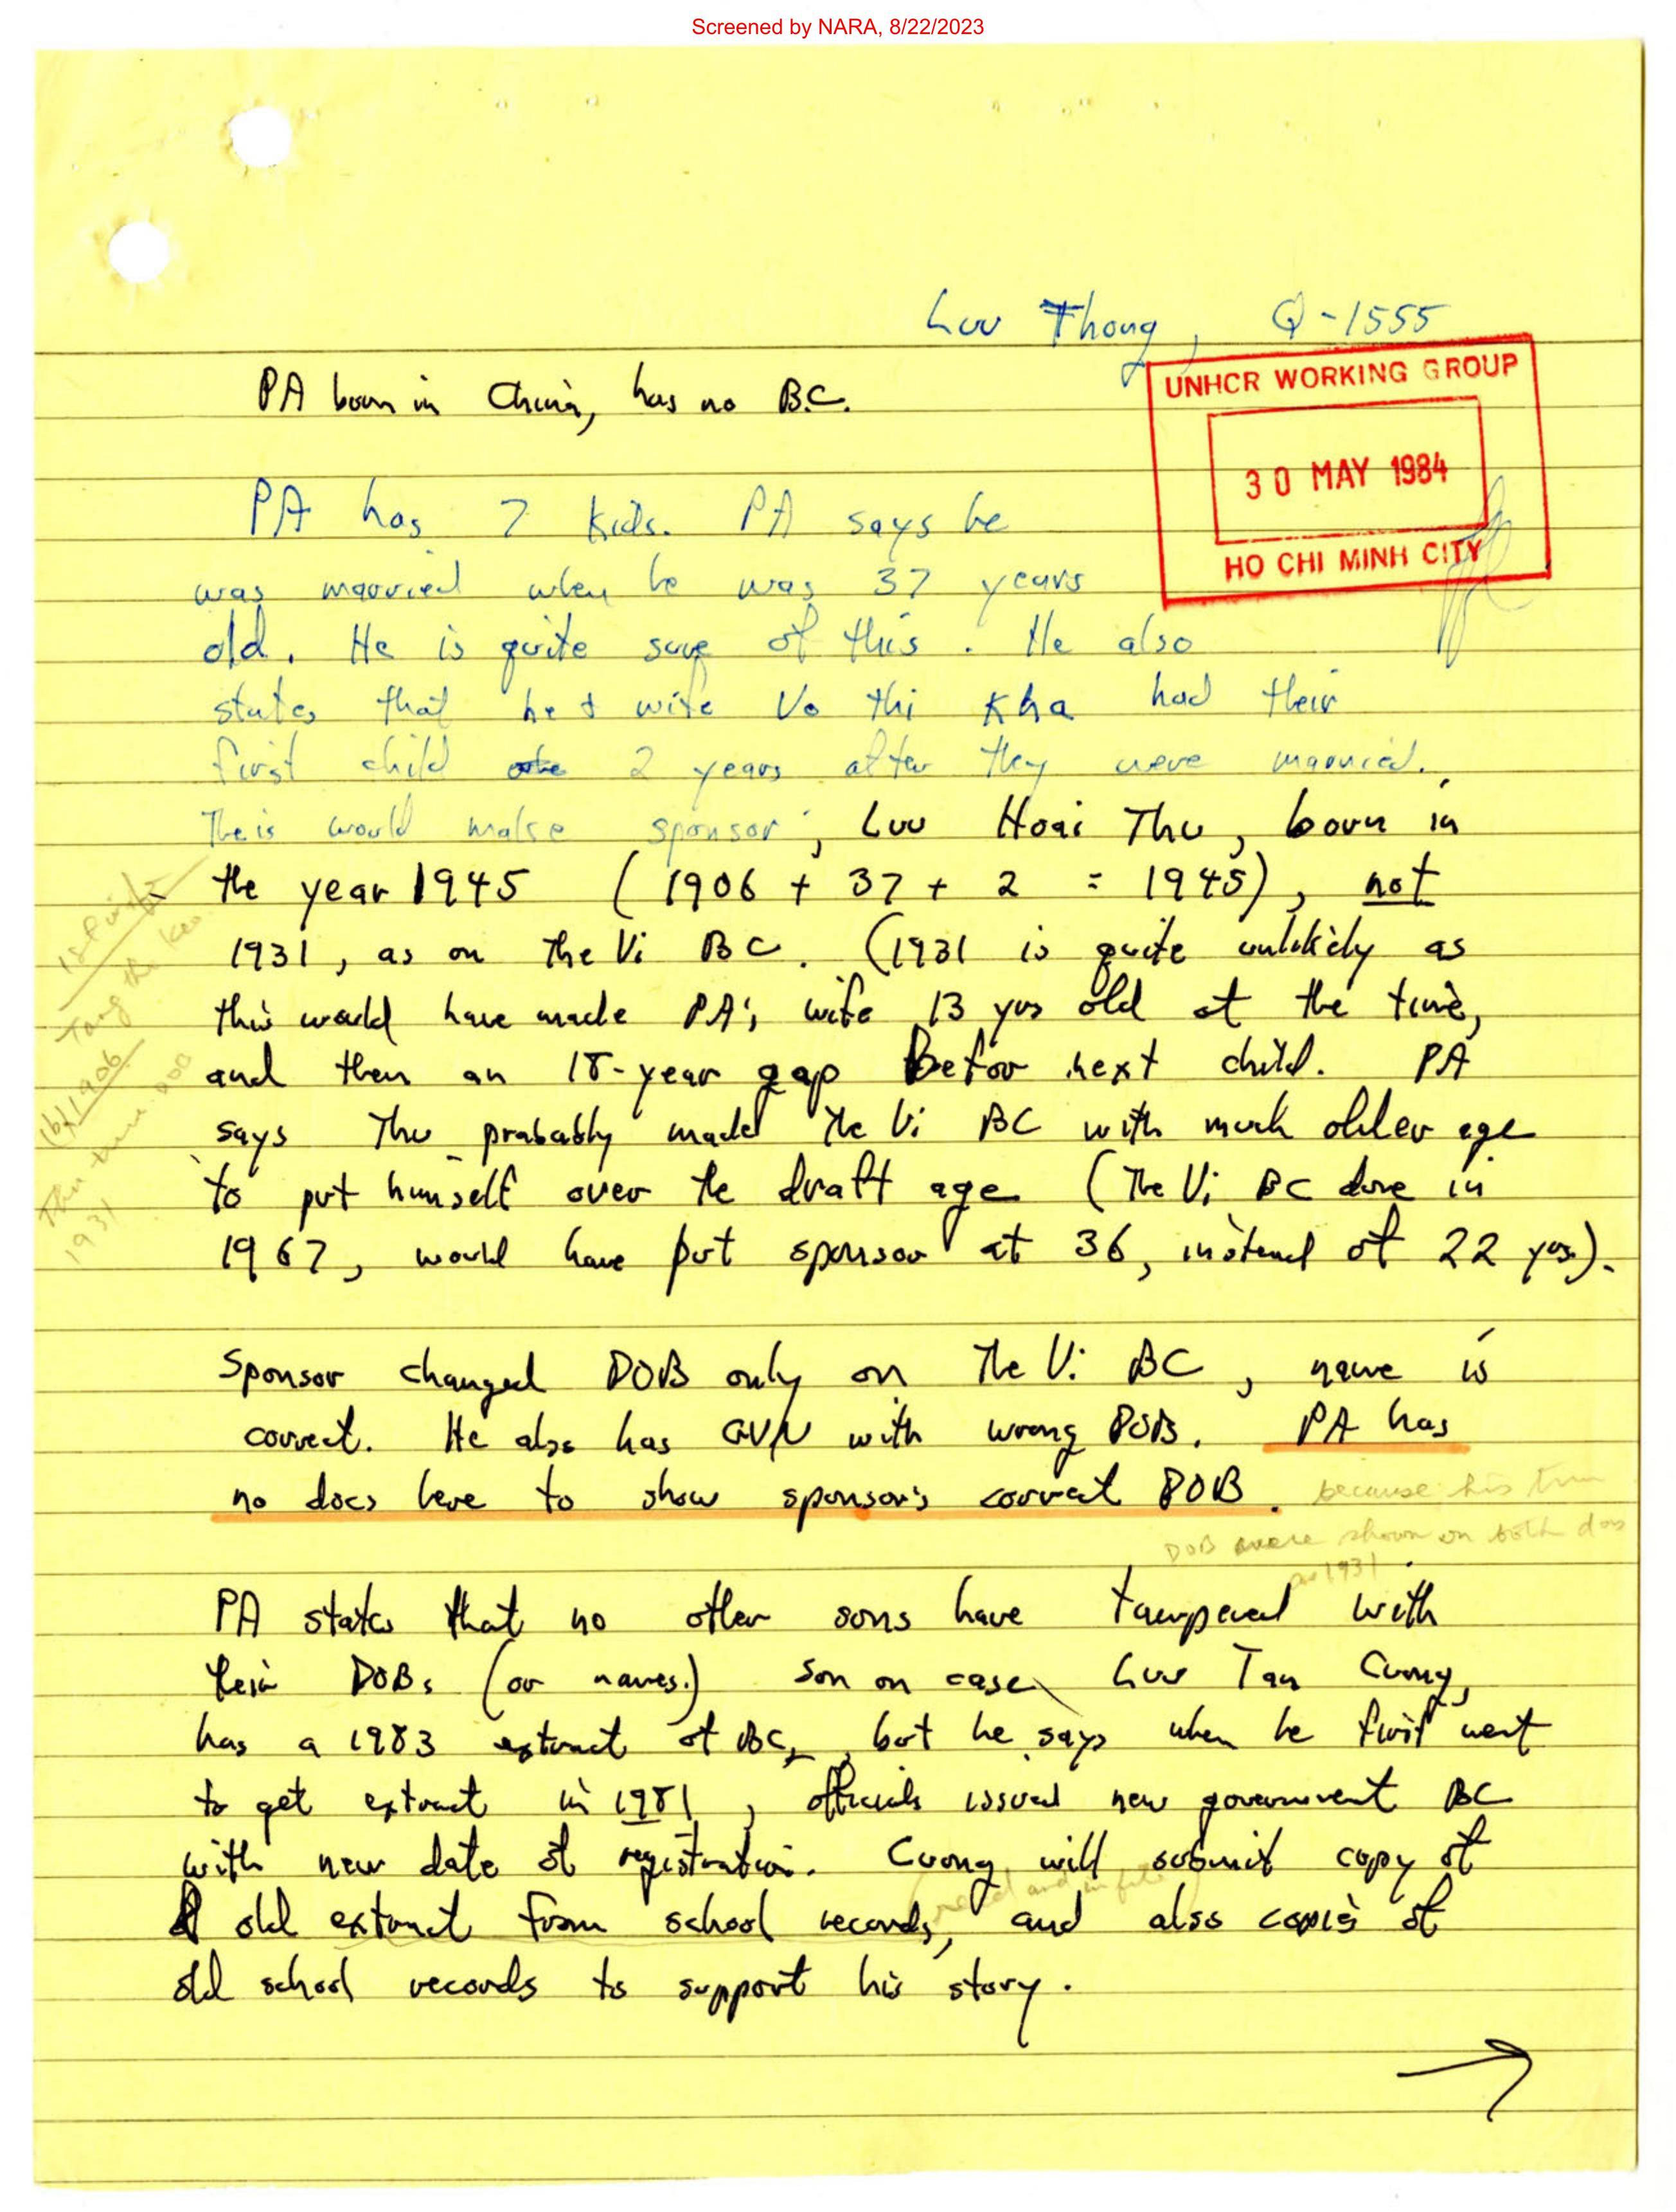 Screened by NARA, 8/22/2023
Luu Thong, Q-1555
UNHCR WORKING GROUP
30 MAY 1984
HO CHI MINH CITY
PA born in China, has no B.C.
PA has 7 kids. PA says he
was married when he was 37 years
old. He is quite sure of this. He also
states that he & wife Vo thi Kha had their
first child 2 years after they were married.
Theis would make sponsor, Luu Hoai Thu, born in
the year 1945 (1906 + 37 + 2 = 1945), not
1931, as on the Vi BC. (1931 is quite unlikely as
this would have made PA's wife 13 yrs old at the time,
and then an 18-year gap before next child. PA
says Thu probably made the Vi BC with much older age
to put himself over the draft age (The Vi BC done in
1967, would have put sponsor at 36, instead of 22 yrs).
Sponsor changed DOB only on the Vi BC, name is
correct. He also has GVN with wrong DOB. PA has
no docs here to show sponsor's correct DOB. because his true
DOB were shown on both docs
1931
PA states that no other sons have tampered with
their DOBs (or names.) Son on case, Luu Tan Cuong,
has a 1983 extract of BC, but he says when he first went
to get extract in 1981, officials issued new government BC
with new date of registration. Cuong will submit copy of
old extract from school records, and also copies of
and in file
old school records to support his story.
1906
1931